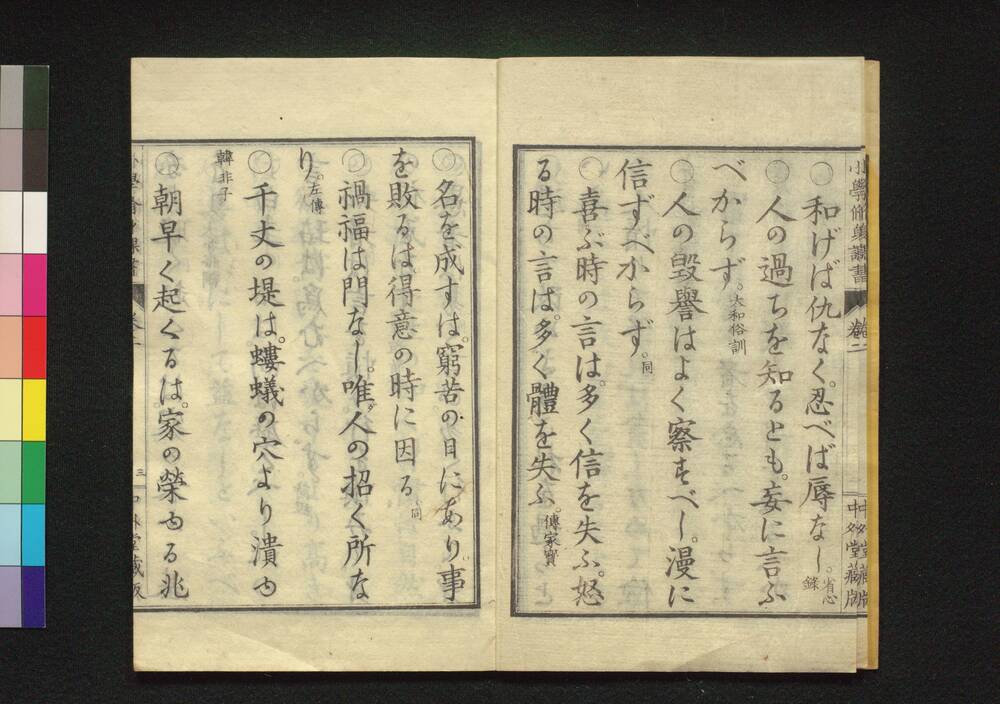 小學修身課書 巻二 中外堂藏版
○和げば仇なく。忍べば辱なし。省心録
○人の過ちを知るとも。妄に言ふ
べからず。大和俗訓
○人の毀譽はよく察すべし。漫に
信ずべからず。同
○喜ぶ時の言は。多く信を失ふ。怒
る時の言は。多く體を失ふ。傳家寶
○名を成すは。窮苦の日にあり。事
を敗るは得意の時に因る。同
○禍福は門なし。唯人の招く所な
り。左傳
○千丈の堤は。螻蟻の穴より潰ゆ
韓非子
○朝早く起くるは。家の榮ゆる兆
三